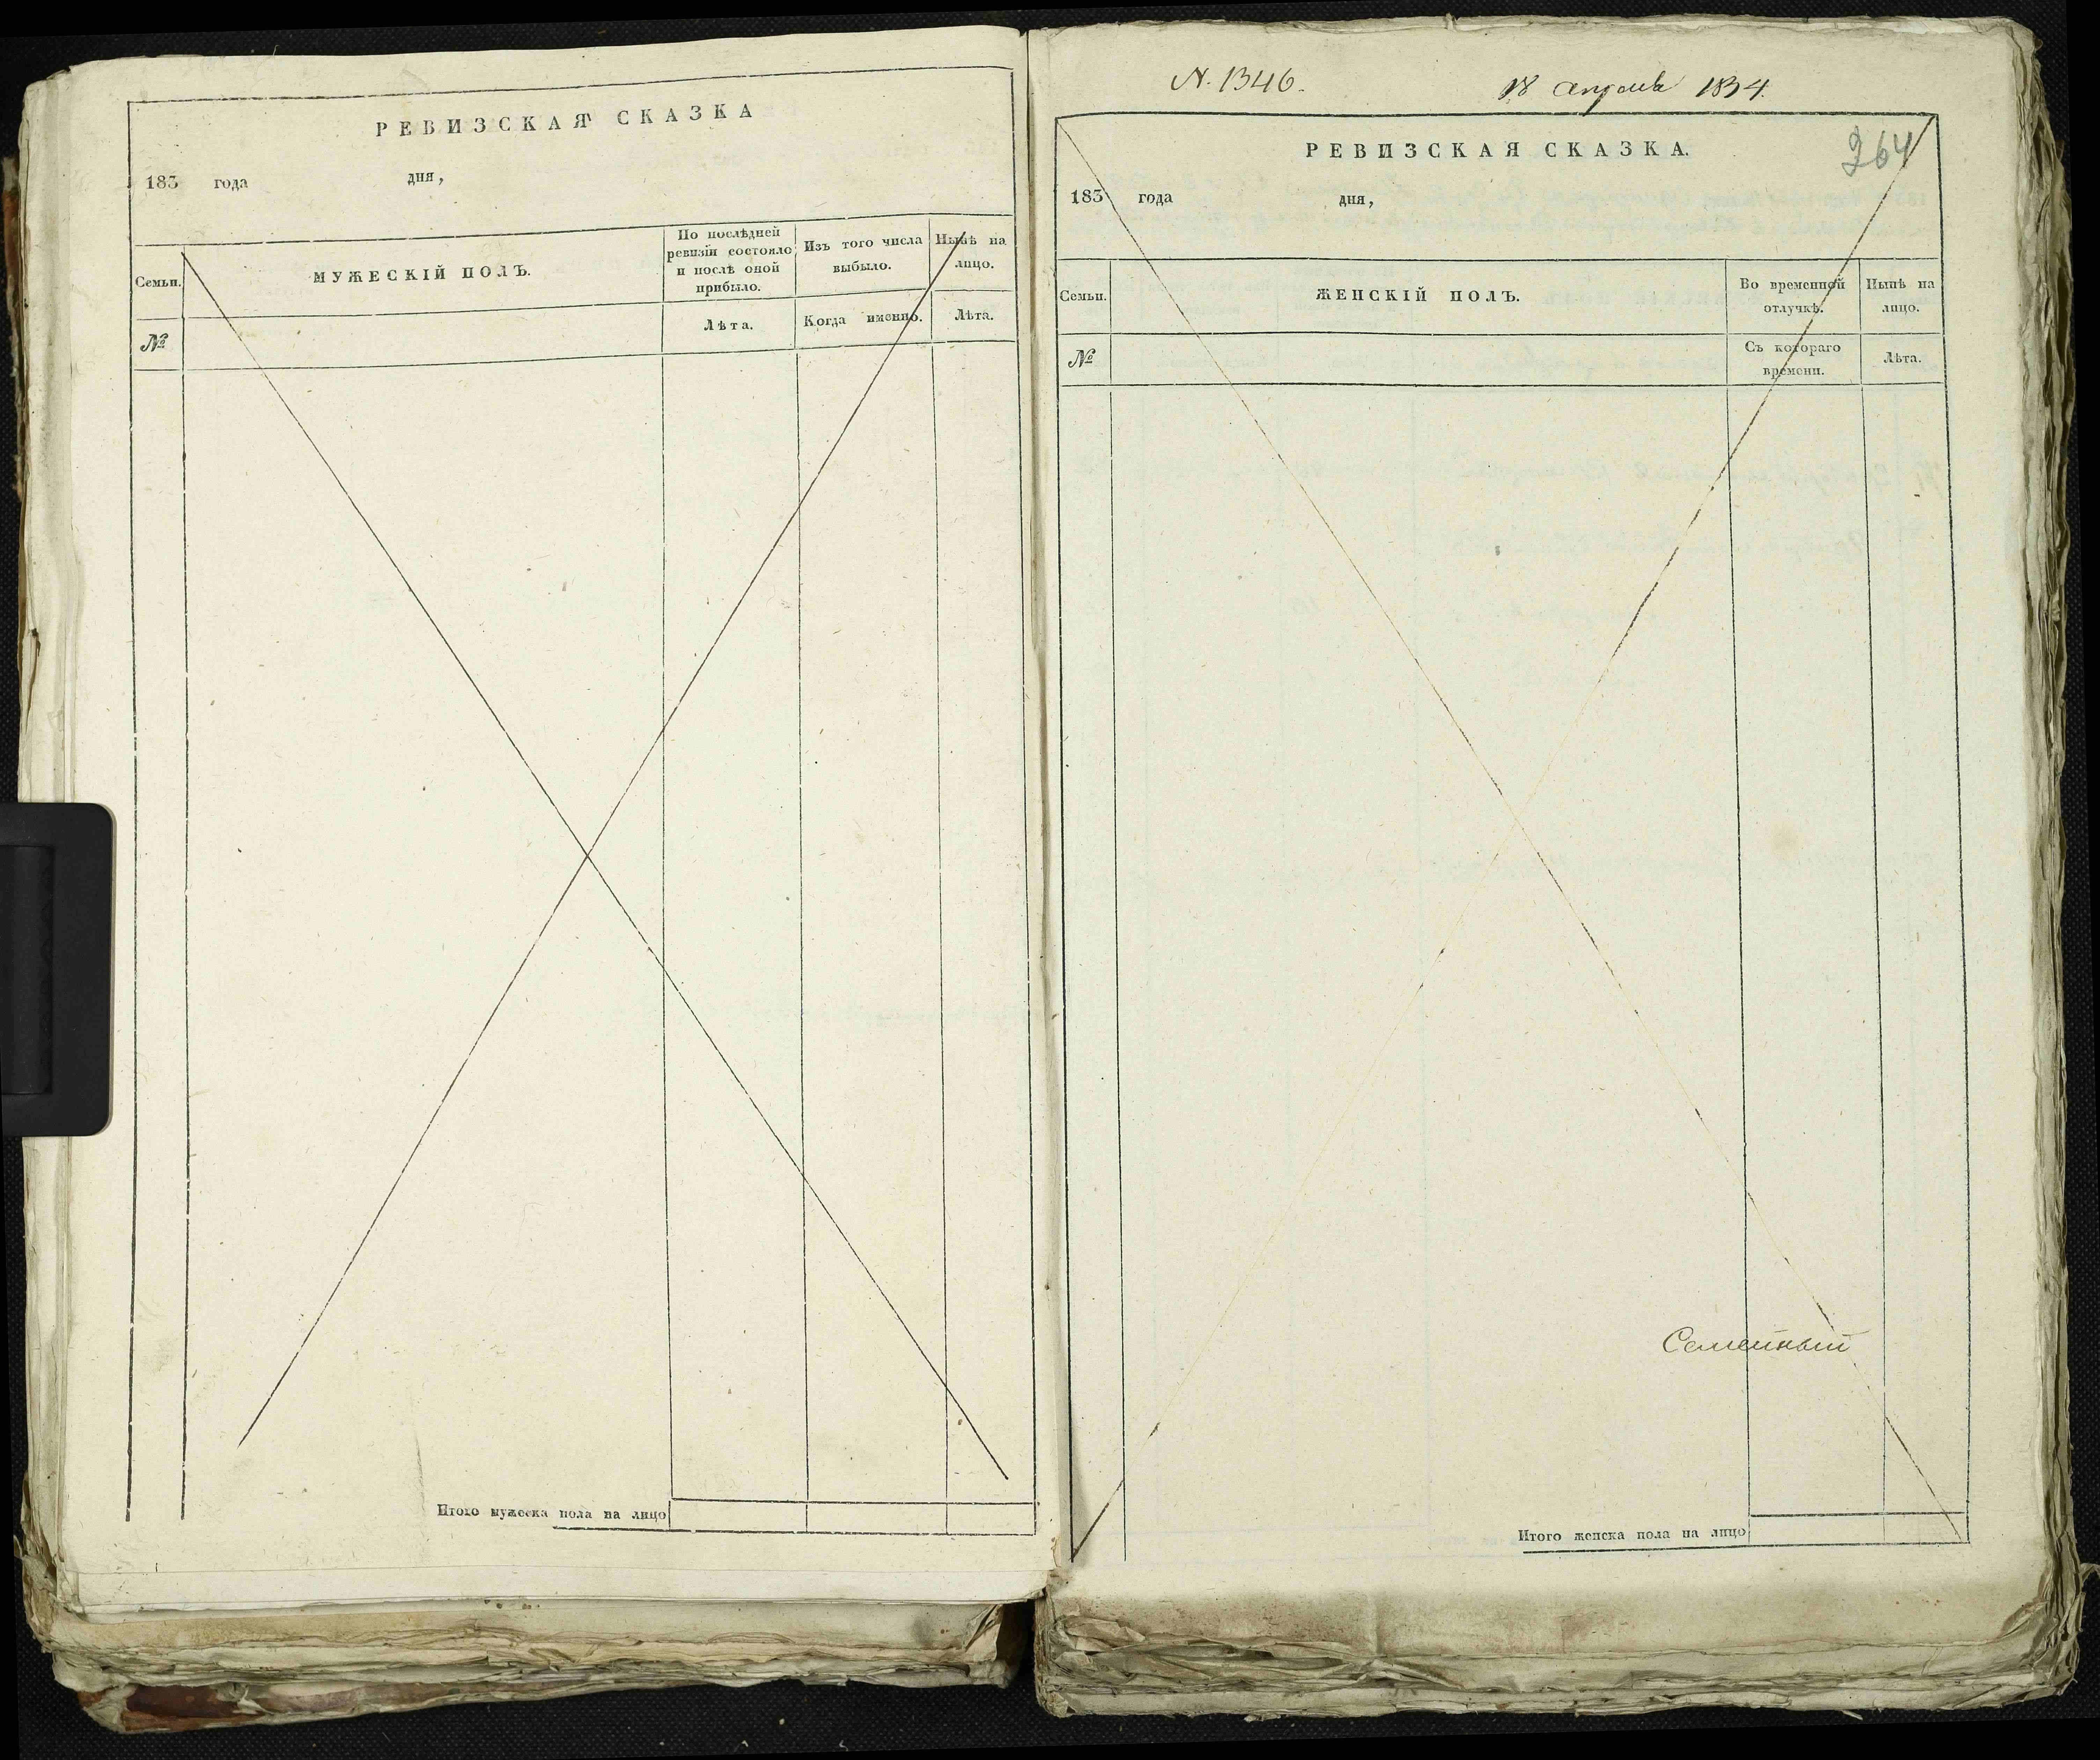 РЕВИЗСКАЯ СКАЗКА
183 года дня,
Семьи.
МУЖЕСКІЙ ПОЛЪ.
По послѣдней ревизіи состояло и послѣ оной прибыло.
Изъ того числа выбыло.
Нынѣ на лицо.
№
Лѣта.
Когда именно.
Лѣта.
Итого мужеска пола на лицо
N. 1346.
18 апреля 1834.
264
РЕВИЗСКАЯ СКАЗКА.
183 года дня,
Семьи.
ЖЕНСКІЙ ПОЛЪ.
Во временной отлучкѣ.
Нынѣ на лицо.
№
Съ котораго времени.
Лѣта.
Семейный
Итого женска пола на лицо